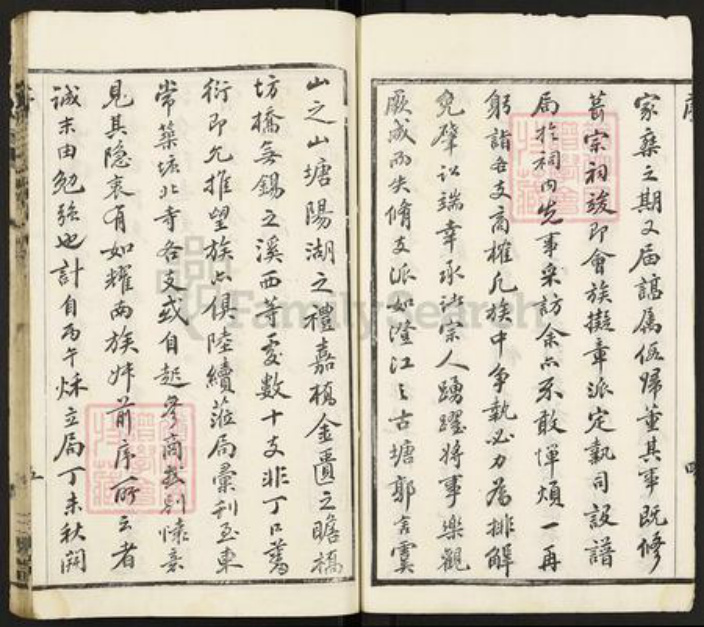 家乘之期又屆諶屬伍歸董其事既修
葺宗祠竣即會族擬章派定執司設譜
局於祠内先事采訪余亦不敢憚煩一再
躬詣各支商榷凡族中爭執必力為排解
兌肇訟端幸承諸宗人踴躍將事樂觀
厥成而失脩支派如澄江之古塘郭言虞
山之山塘陽湖之禮嘉橋金匱之瞻橋
坊橋無錫之溪西等處數十支非丁口蕃
衍即允推望族亦俱陸續蒞局彙刊至東
常築塘北寺各支或自起爹商或別懷意
見其隐衷有如耀南族姪前序所云者
誠未由勉强也計自丙午秌立局丁未秋開
序
四
五
FamilySearch